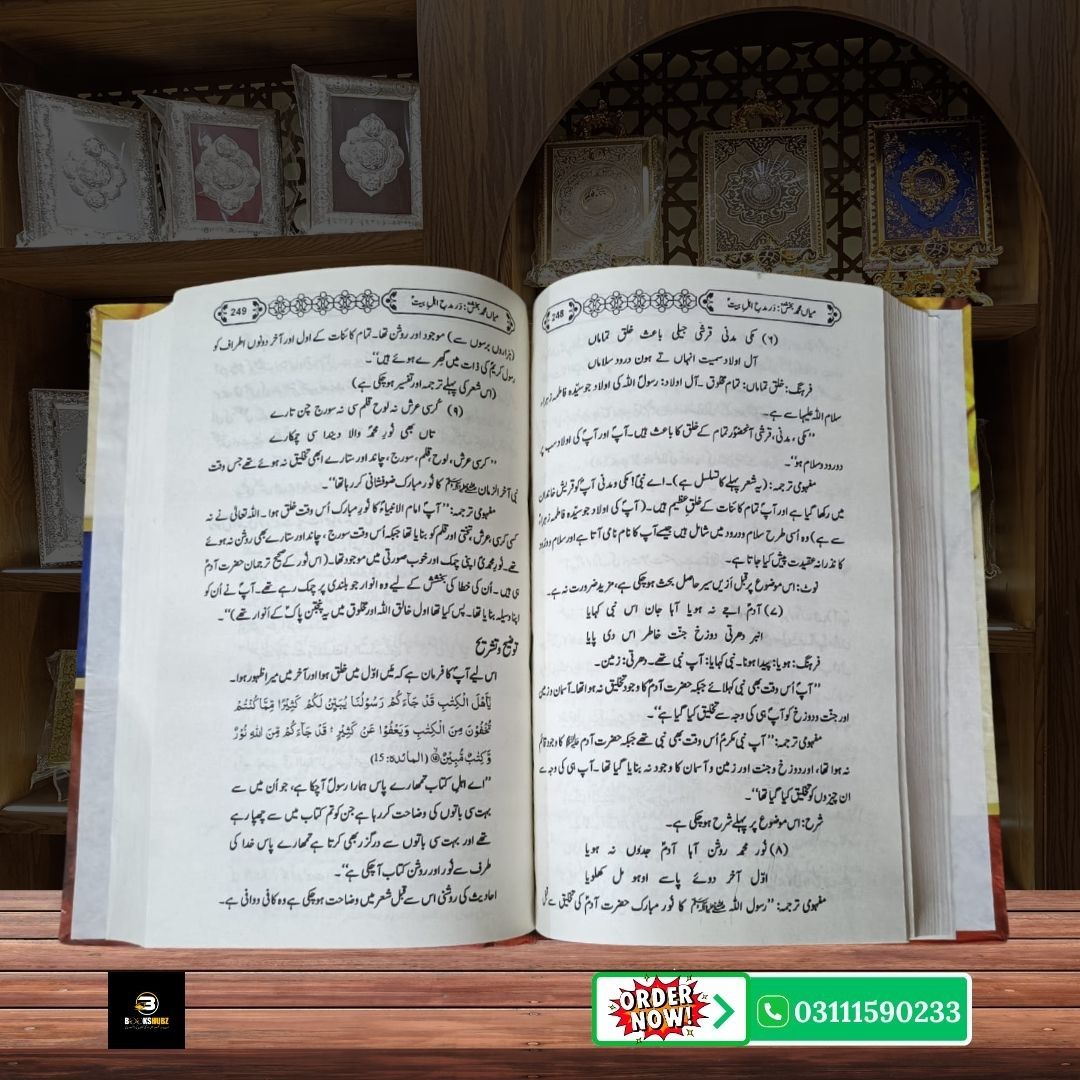 میاں محمد بخشؒ: در مدح اہلِ بیتؑ
248
(۶) مکی مدنی قرشی جیلی باعث خلق تماماں
آل اولاد سمیت انہاں تے ہون درود سلاماں
فرہنگ: خلق تماماں: تمام مخلوق۔ آل اولاد: رسولؐ اللہ کی اولاد جو سیّدہ فاطمہ زہراء
سلام اللہ علیہا سے ہے۔
”مکی، مدنی، قرشی آنحضورؐ تمام کے خلق کا باعث ہیں۔ آپؐ اور آپؐ کی اولاد سب پر
درود و سلام ہو“۔
مفہومی ترجمہ: (یہ شعر پہلے کا تسلسل ہے)۔ اے نبیؐ! مکی و مدنی آپؐ کو قریش خاندان
میں رکھا گیا ہے اور آپؐ تمام کائنات کے خلقِ عظیم ہیں۔ (آپؐ کی اولاد جو سیّدہ فاطمہ زہراء
سے ہے) وہ اُسی طرح سلام و درود میں شامل ہیں جیسے آپؐ کا نام نامی آتا ہے اور سلام و درود
کا نذرانہ عقیدت پیش کیا جاتا ہے۔
نوٹ: اس موضوع پر قبل ازیں سیر حاصل بحث ہوچکی ہے، مزید ضرورت نہ ہے۔
(۷) آدمؑ اجے نہ ہویا آہا جان اس نبی کہایا
انبر دھرتی دوزخ جنّت خاطر اس دی پایا
فرہنگ: ہویا: پیدا ہونا۔ نبی کہایا: آپ نبی تھے۔ دھرتی: زمین۔
”آپؐ اُس وقت بھی نبی کہلائے جبکہ حضرت آدمؑ کا وجود تخلیق نہ ہوا تھا۔ آسمان و زمین
اور جنّت و دوزخ کو آپؐ ہی کی وجہ سے تخلیق کیا گیا ہے“۔
مفہومی ترجمہ: ”آپ نبی مکرمؐ اُس وقت بھی نبی تھے جبکہ حضرت آدم علیہ السلام کا وجود قائم
نہ ہوا تھا، اور دوزخ و جنت اور زمین و آسمان کا وجود نہ بنایا گیا تھا۔ آپ ہی کی وجہ سے
ان چیزوں کو تخلیق کیا گیا تھا“۔
شرح: اس موضوع پر پہلے شرح ہوچکی ہے۔
(۸) نُور محمدؐ روشن آہا آدمؑ جدوں نہ ہویا
اوّل آخر دوئے پاسے اوہو مل کھلویا
مفہومی ترجمہ: ”رسول اللہ ﷺ کا نُور مبارک حضرت آدمؑ کی تخلیق سے قبل
میاں محمد بخشؒ: در مدح اہلِ بیتؑ
249
(ہزاروں برسوں سے) موجود اور روشن تھا۔ تمام کائنات کے اول اور آخر دونوں اطراف کو
رسولِ کریمؐ کی ذات میں گھیرے ہوئے ہیں“۔
(اس شعر کی پہلے ترجمہ اور تفسیر ہوچکی ہے)
(۹) کُرسی عرش نہ لوح قلم سی نہ سورج چن تارے
تاں بھی نُور محمدؐ والا دیندا سی چمکارے
”کُرسی عرش، لوح، قلم، سورج، چاند اور ستارے ابھی تخلیق نہ ہوئے تھے جس وقت
نبی آخر الزمان ﷺ کا نُور مبارک ضوفشانی کر رہا تھا“۔
مفہومی ترجمہ: ”آپؐ امام الانبیاءؑ کا نُور مبارک اُس وقت خلق ہوا۔ اللہ تعالیٰ نے نہ
کسی کرسی، عرش، تختی اور قلم کو بنایا تھا جبکہ اُس وقت سورج، چاند اور ستارے بھی روشن نہ ہوئے
تھے۔ نورِ محمدیؐ اپنی چمک اور خوب صورتی میں موجود تھا۔ (اس نُور کے صحیح ترجمان حضرت آدمؑ
ہی ہیں۔ اُن کی خطا کی بخشش کے لیے وہ انوار جو بلندی پر چمک رہے تھے۔ آپؑ نے اُن کو
اپنا وسیلہ بنایا تھا۔ پس کیا تھا اول خالق اللہ اور مخلوق میں یہ پنجتن پاکؑ کے اَنوار تھے)“۔
توضیح و تشریح
اس لیے آپؐ کا فرمان ہے کہ میں اوّل میں خلق ہوا اور آخر میں میرا ظہور ہوا۔
يٰٓاَهْلَ الْكِتٰبِ قَدْ جَآءَكُمْ رَسُوْلُنَا يُبَيِّنُ لَكُمْ كَثِيْرًا مِّمَّا كُنْتُمْ
تُخْفُوْنَ مِنَ الْكِتٰبِ وَيَعْفُوْا عَنْ كَثِيْرٍ ؕ قَدْ جَآءَكُمْ مِّنَ اللّٰهِ نُوْرٌ
وَّكِتٰبٌ مُّبِيْنٌ (المائدہ: 15)
”اے اہلِ کتاب تمہارے پاس ہمارا رسولؐ آچکا ہے، جو اُن میں سے
بہت سی باتوں کی وضاحت کر رہا ہے جن کو تم کتاب میں سے چھپا رہے
تھے اور بہت سی باتوں سے درگزر بھی کرتا ہے تمہارے پاس خدا کی
طرف سے نُور اور روشن کتاب آچکی ہے“۔
احادیث کی روشنی اس سے قبل شعر میں وضاحت ہوچکی ہے وہ کافی و وافی ہے۔
BOOKSHUBZ
ORDER NOW!
03111590233